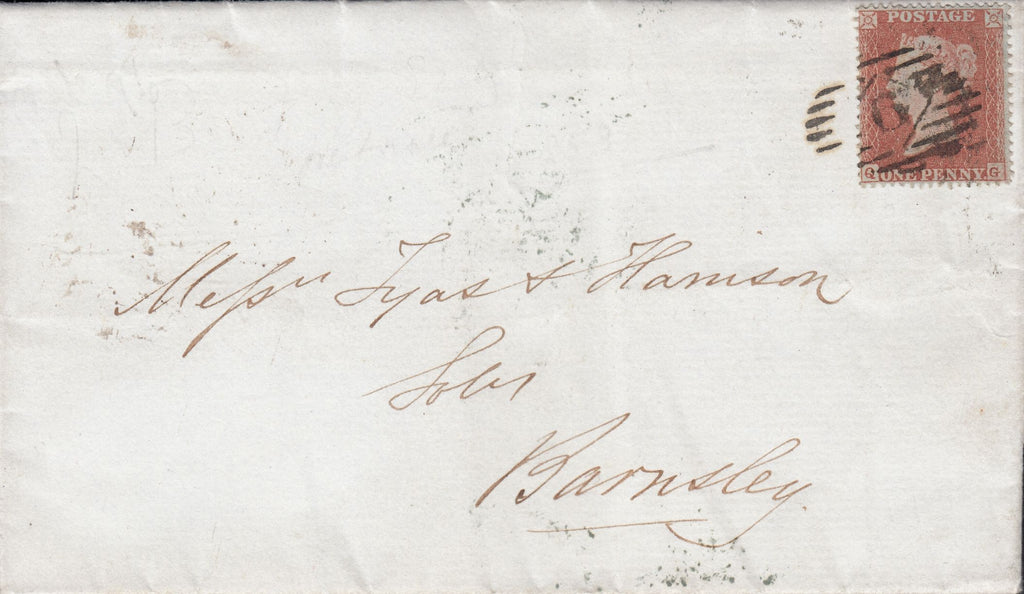 POSTAGE
Q ONE PENNY. G
Messrs Tyas & Harrison
Solrs
Barnsley